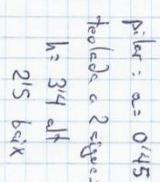 pilar: a= 0'45
teulada a 2 aigües
h= 3'4 alt
2'5 baix